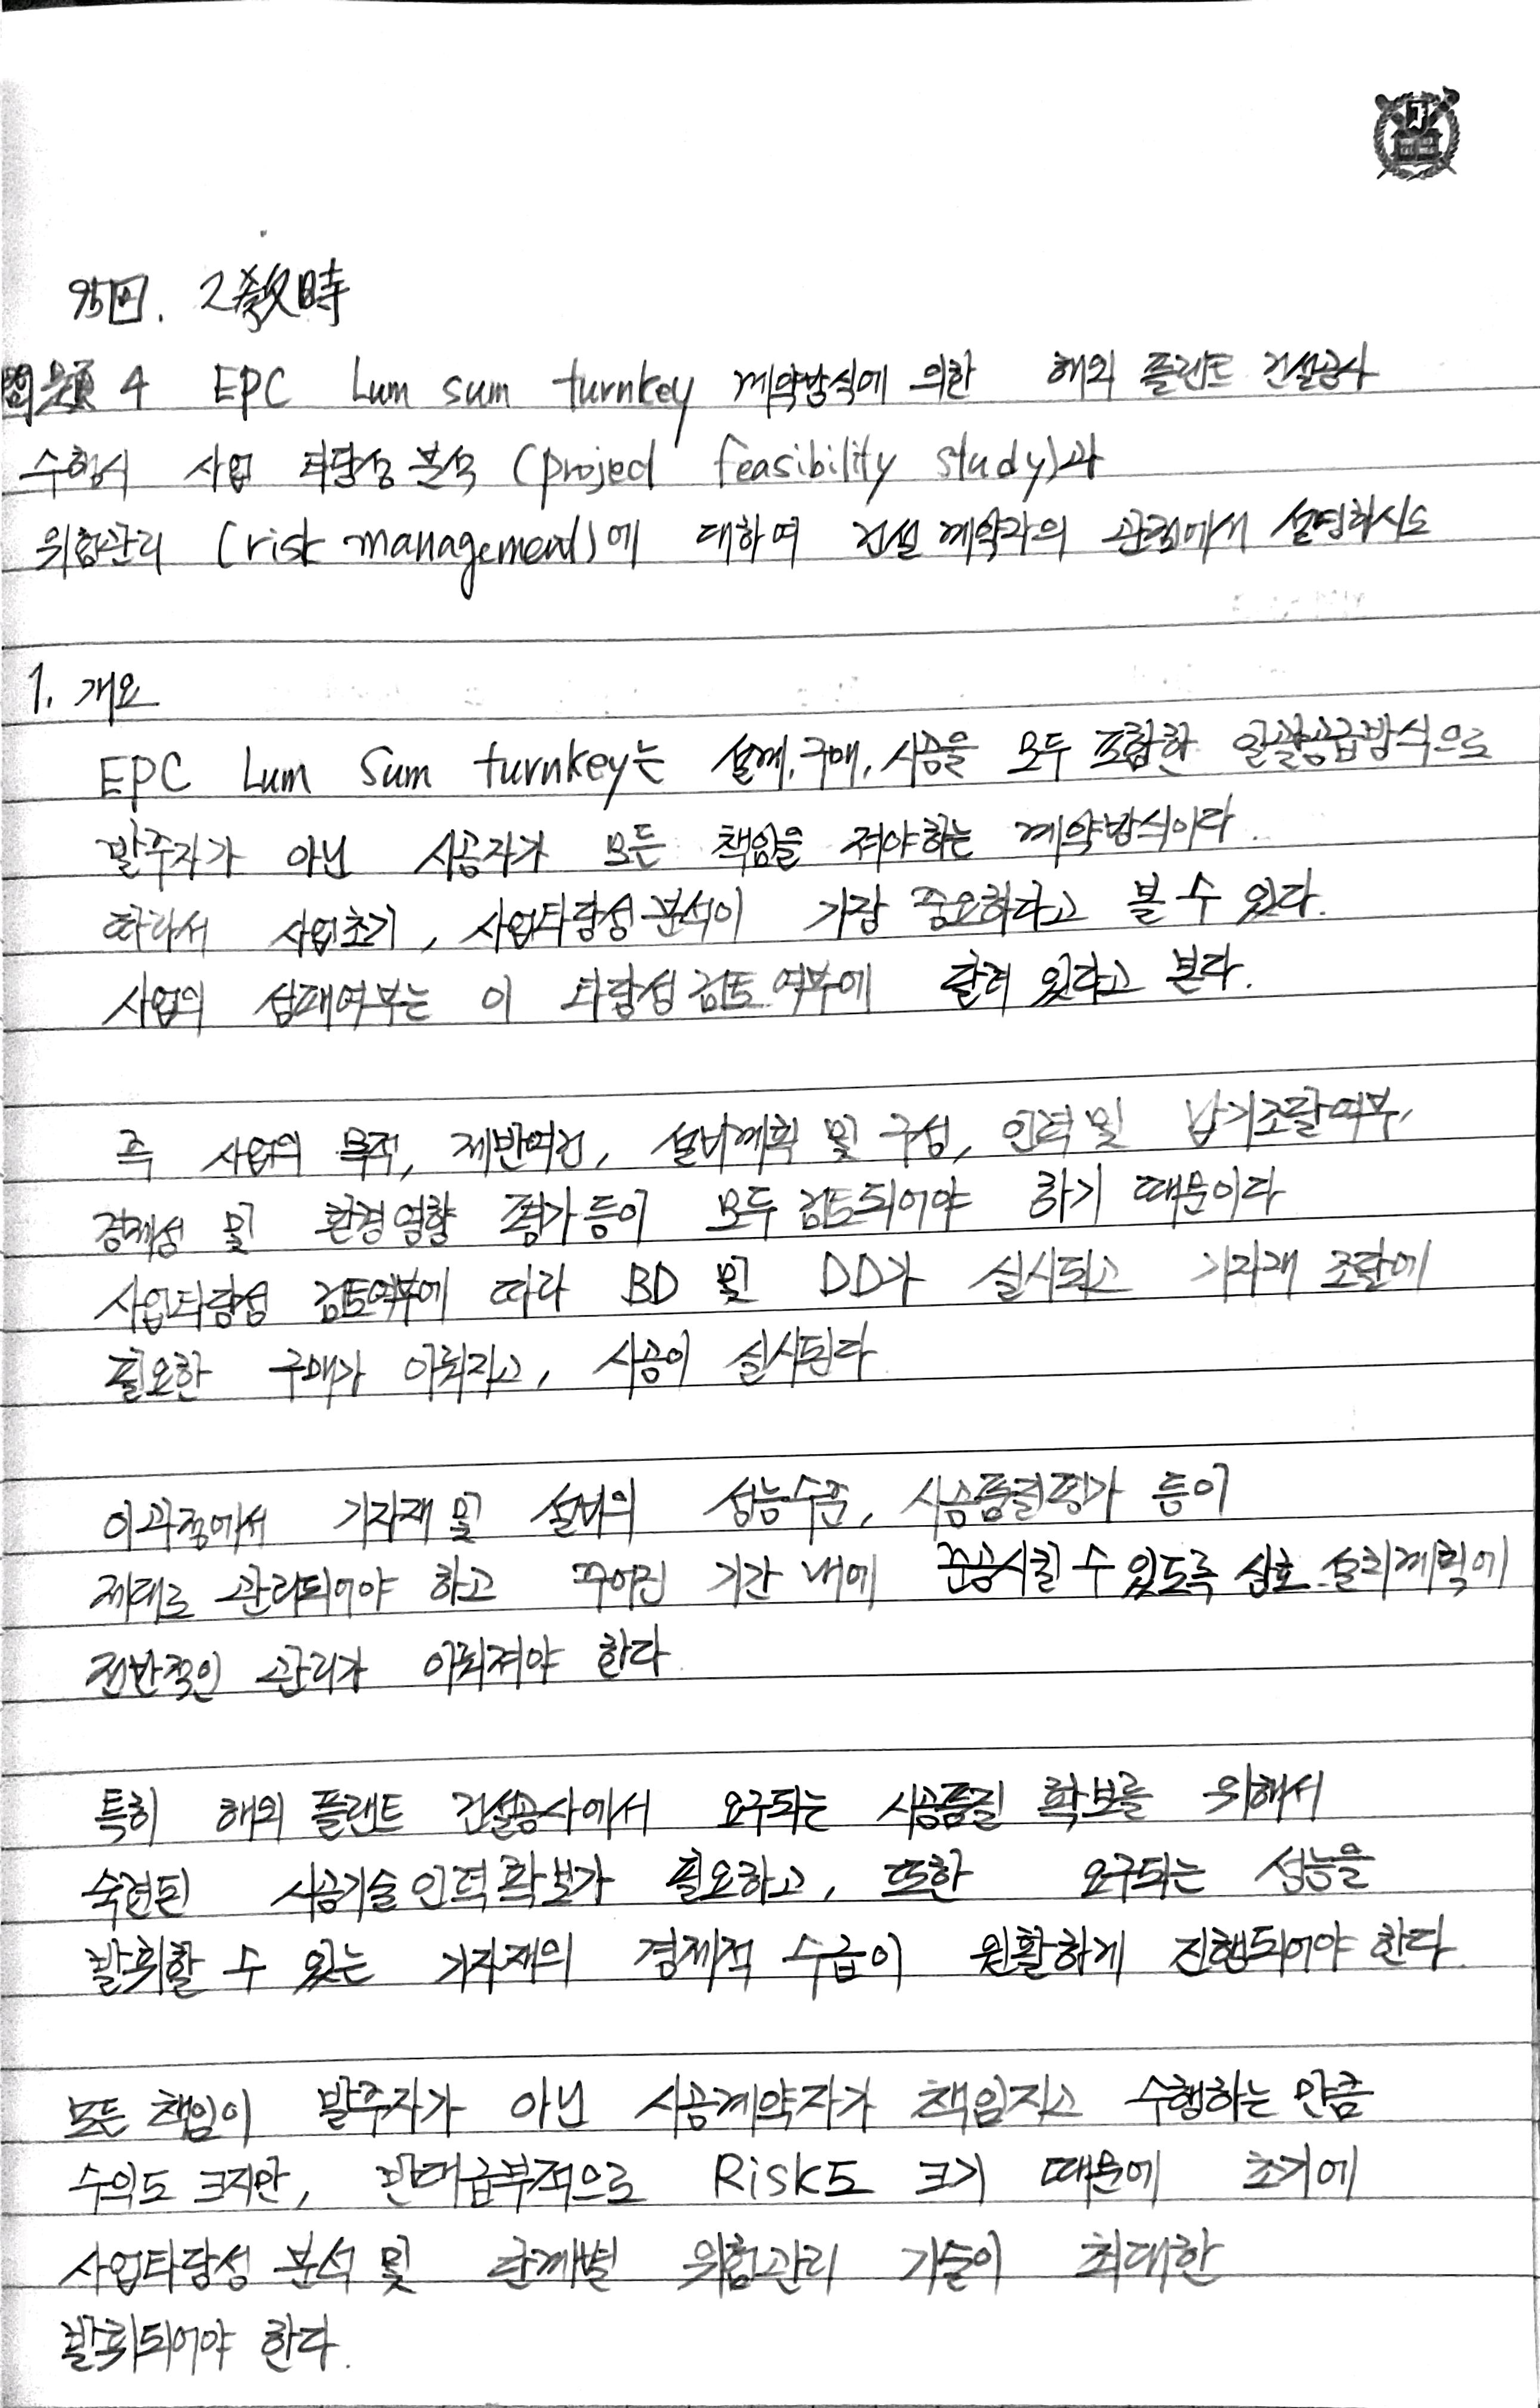 95回. 2敎時
問題 4 EPC Lum sum turnkey 계약방식에 의한 해외 플랜트 건설공사
수행시 사업 타당성 분석 (project feasibility study)과
위험관리 (risk management)에 대하여 건설 계약자의 관점에서 설명하시오
1. 개요
EPC Lum Sum turnkey는 설계, 구매, 시공을 모두 포함한 일괄공급방식으로
발주자가 아닌 시공자가 모든 책임을 져야하는 계약방식이다.
따라서 사업초기, 사업타당성분석이 가장 중요하다고 볼 수 있다.
사업의 성패여부는 이 타당성검토 여부에 달려 있다고 본다.
즉 사업의 목적, 제반여건, 설비계획 및 구성, 인력 및 납기조달여부,
경제성 및 환경영향 평가 등이 모두 검토되어야 하기 때문이다
사업타당성 검토여부에 따라 BD 및 DD가 실시되고 기자재 조달에
필요한 구매가 이뤄지고, 시공이 실시된다
이 과정에서 기자재 및 설비의 성능수준, 시공품질평가 등이
제대로 관리되어야 하고 주어진 기간 내에 준공시킬 수 있도록 상호 설치계획에
전반적인 관리가 이뤄져야 한다
특히 해외 플랜트 건설공사에서 요구되는 시공품질 확보를 위해서
숙련된 시공기술인력확보가 필요하고, 또한 요구되는 성능을
발휘할 수 있는 기자재의 경제적 수급이 원활하게 진행되어야 한다.
모든 책임이 발주자가 아닌 시공계약자가 책임지고 수행하는 만큼
수익도 크지만, 반대급부적으로 Risk도 크기 때문에 초기에
사업타당성 분석 및 단계별 위험관리 기술이 최대한
발휘되어야 한다.